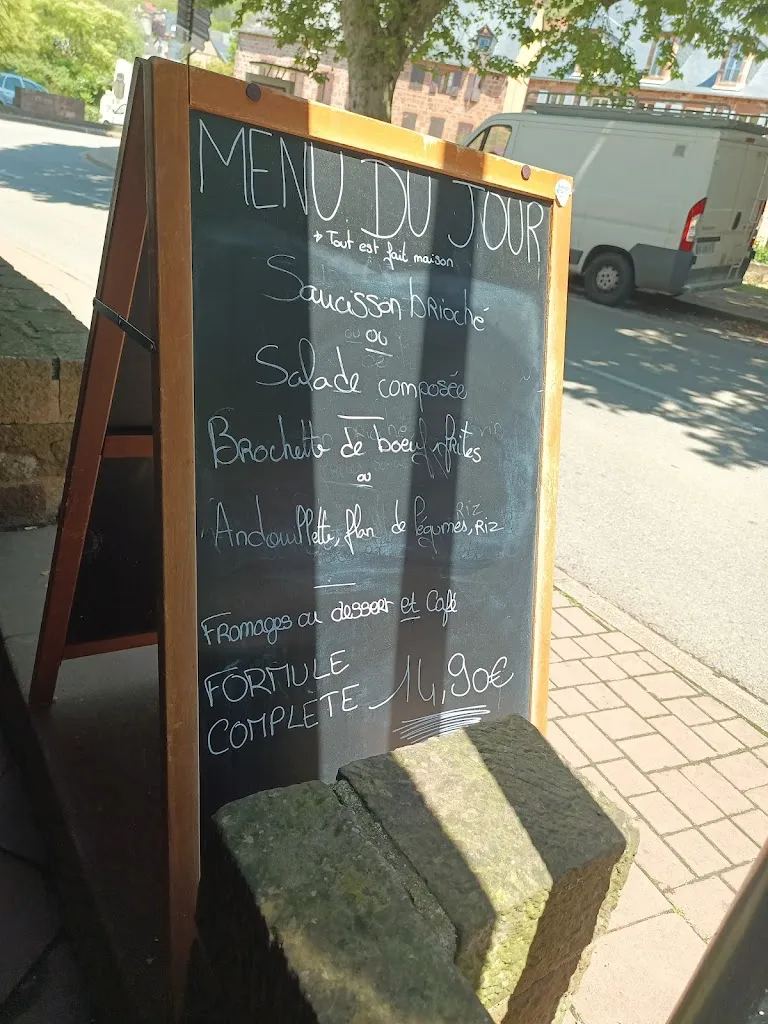 MENU DU JOUR
→ Tout est fait maison
Saucisson brioché
ou
Salade composée
Brochette de boeuf, frites
ou
Andouillette, flan de légumes, Riz
Fromages ou dessert et Café
FORMULE
COMPLÈTE 14,90€